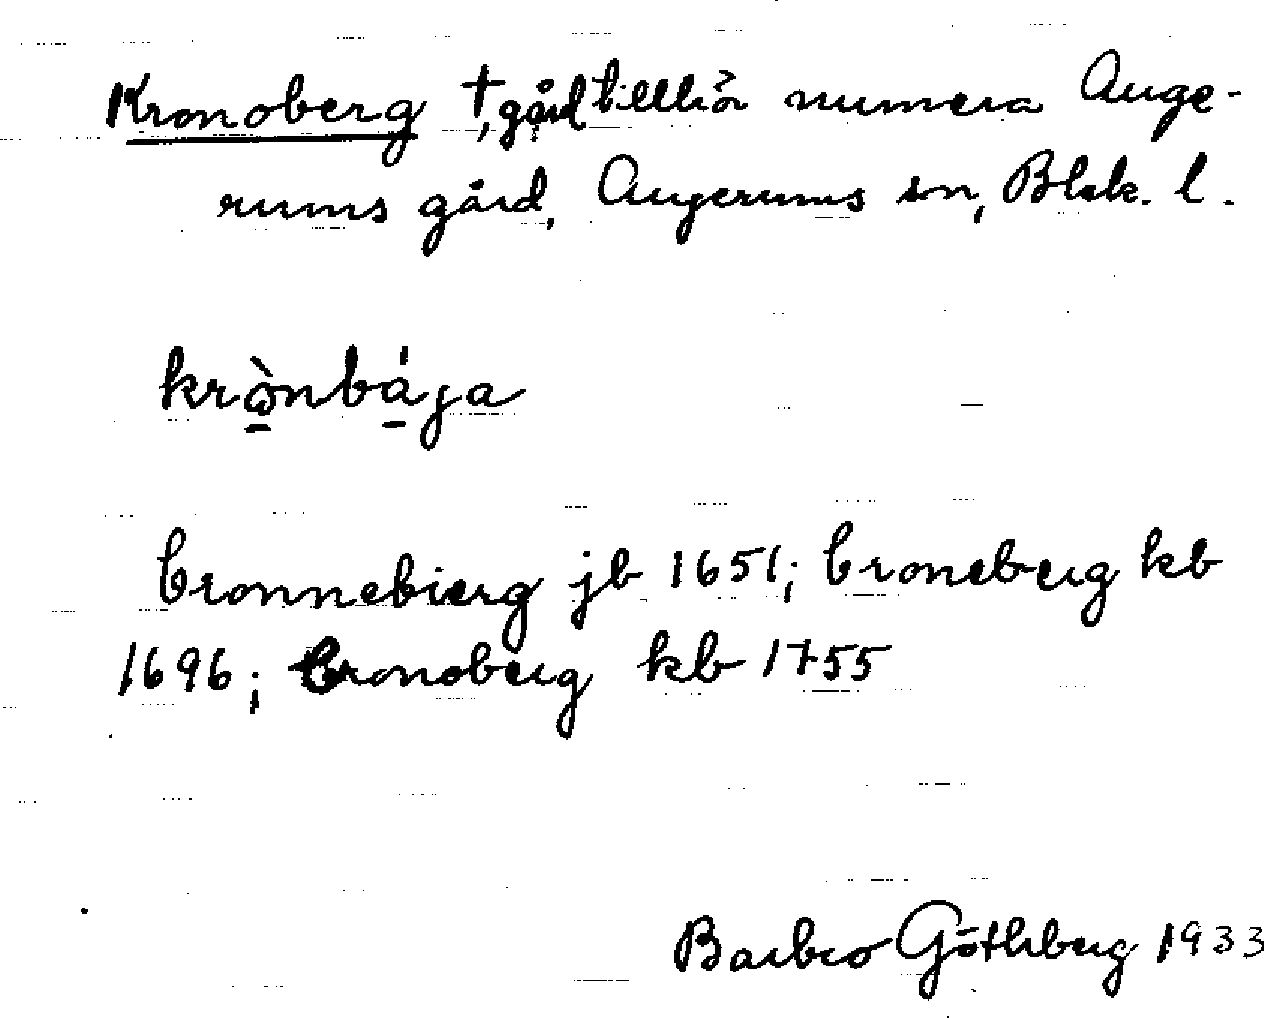 Kronoberg †, gård tillhör numera Auge-
rums gård, Augerums sn, Blek. l.
krò̱nbá̱ja
Cronnebierg jb 1651; Croneberg kb
1696; Cronoberg kb 1755
Barbro Göthberg 1933